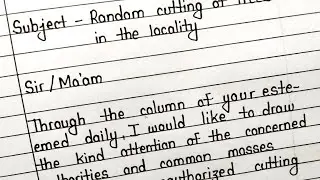 Subject - Random cutting of
in the locality
Sir/Ma'am
Through the column of your este-
emed daily, I would like to draw
the kind attention of the concerned
and common masses
cutting